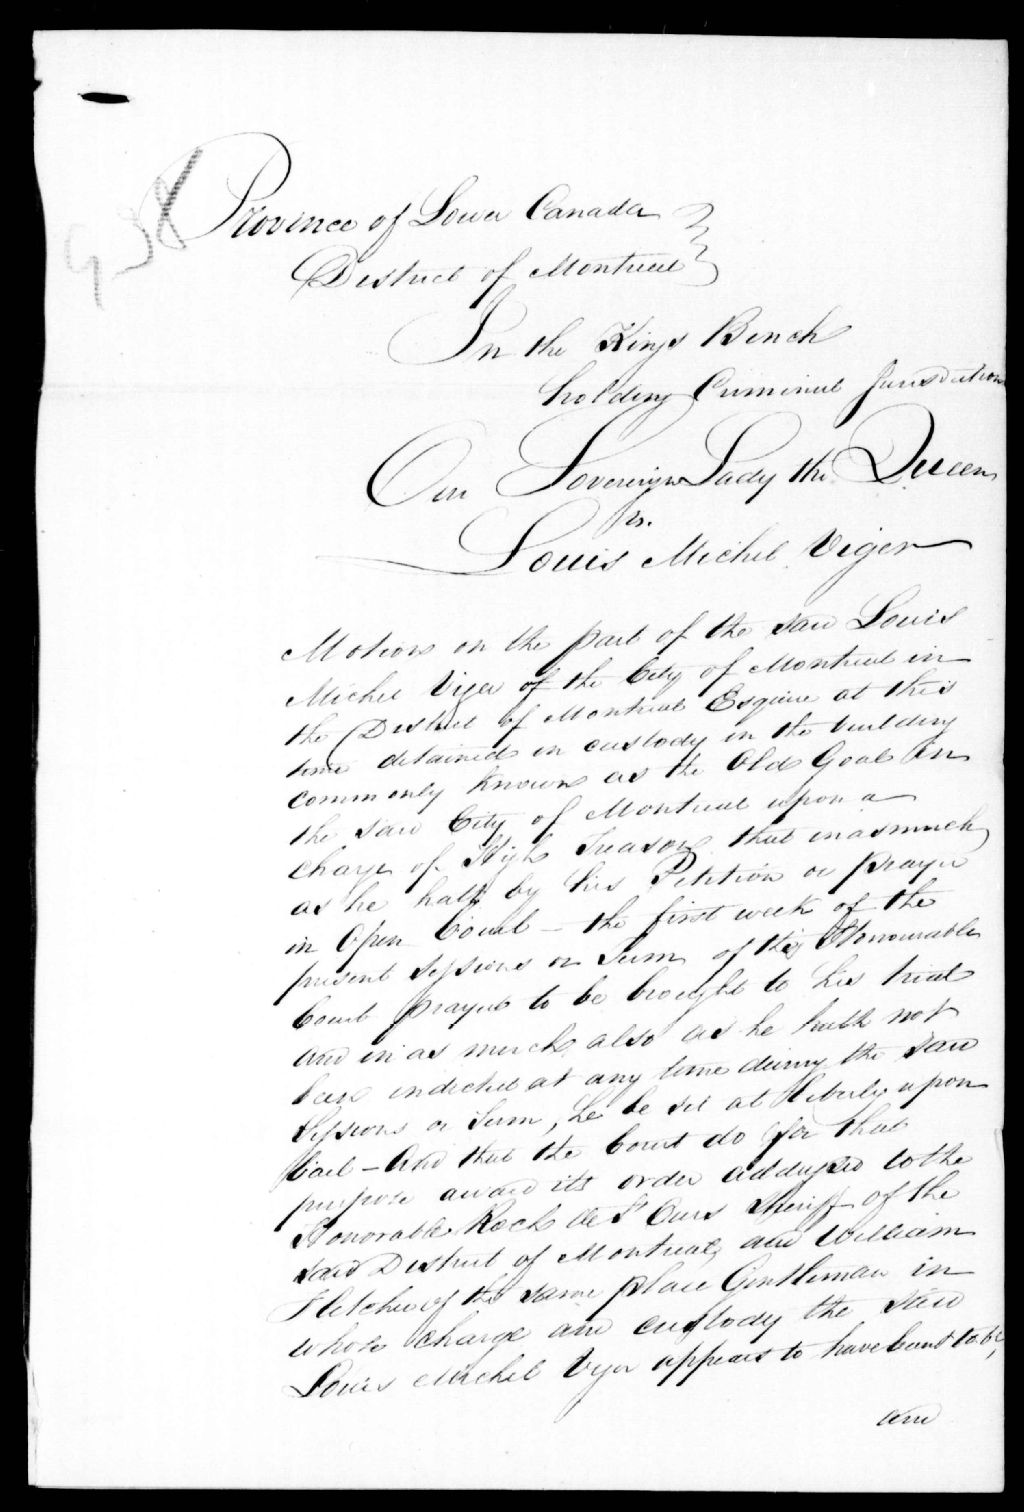 938
Province of Lower Canada
District of Montreal
In the Kings Bench
holding Criminal Jurisdiction
Our Sovereign Lady the Queen
vs.
Louis Michel Viger
Motion on the part of the said Louis
Michel Viger of the City of Montreal in
the District of Montreal Esquire at this
time detained in custody in the building
commonly known as the Old Goal in
the said City of Montreal upon a
charge of High Treason that inasmuch
as he hath by his Petition or prayer
in Open Court – the first week of the
present Sessions or Term of this Honourable
Court prayed to be brought to his trial
and in as much also as he hath not
been indicted at any time during the said
Sessions or Term, he be set at liberty upon
bail – And that the Court do for that
purpose award its order addressed to the
Honorable Roch de St Ours Sheriff of the
said District of Montreal, and William
Fletcher of the same place Gentleman in
whose charge and custody the said
Louis Michel Viger appears to have been &
and